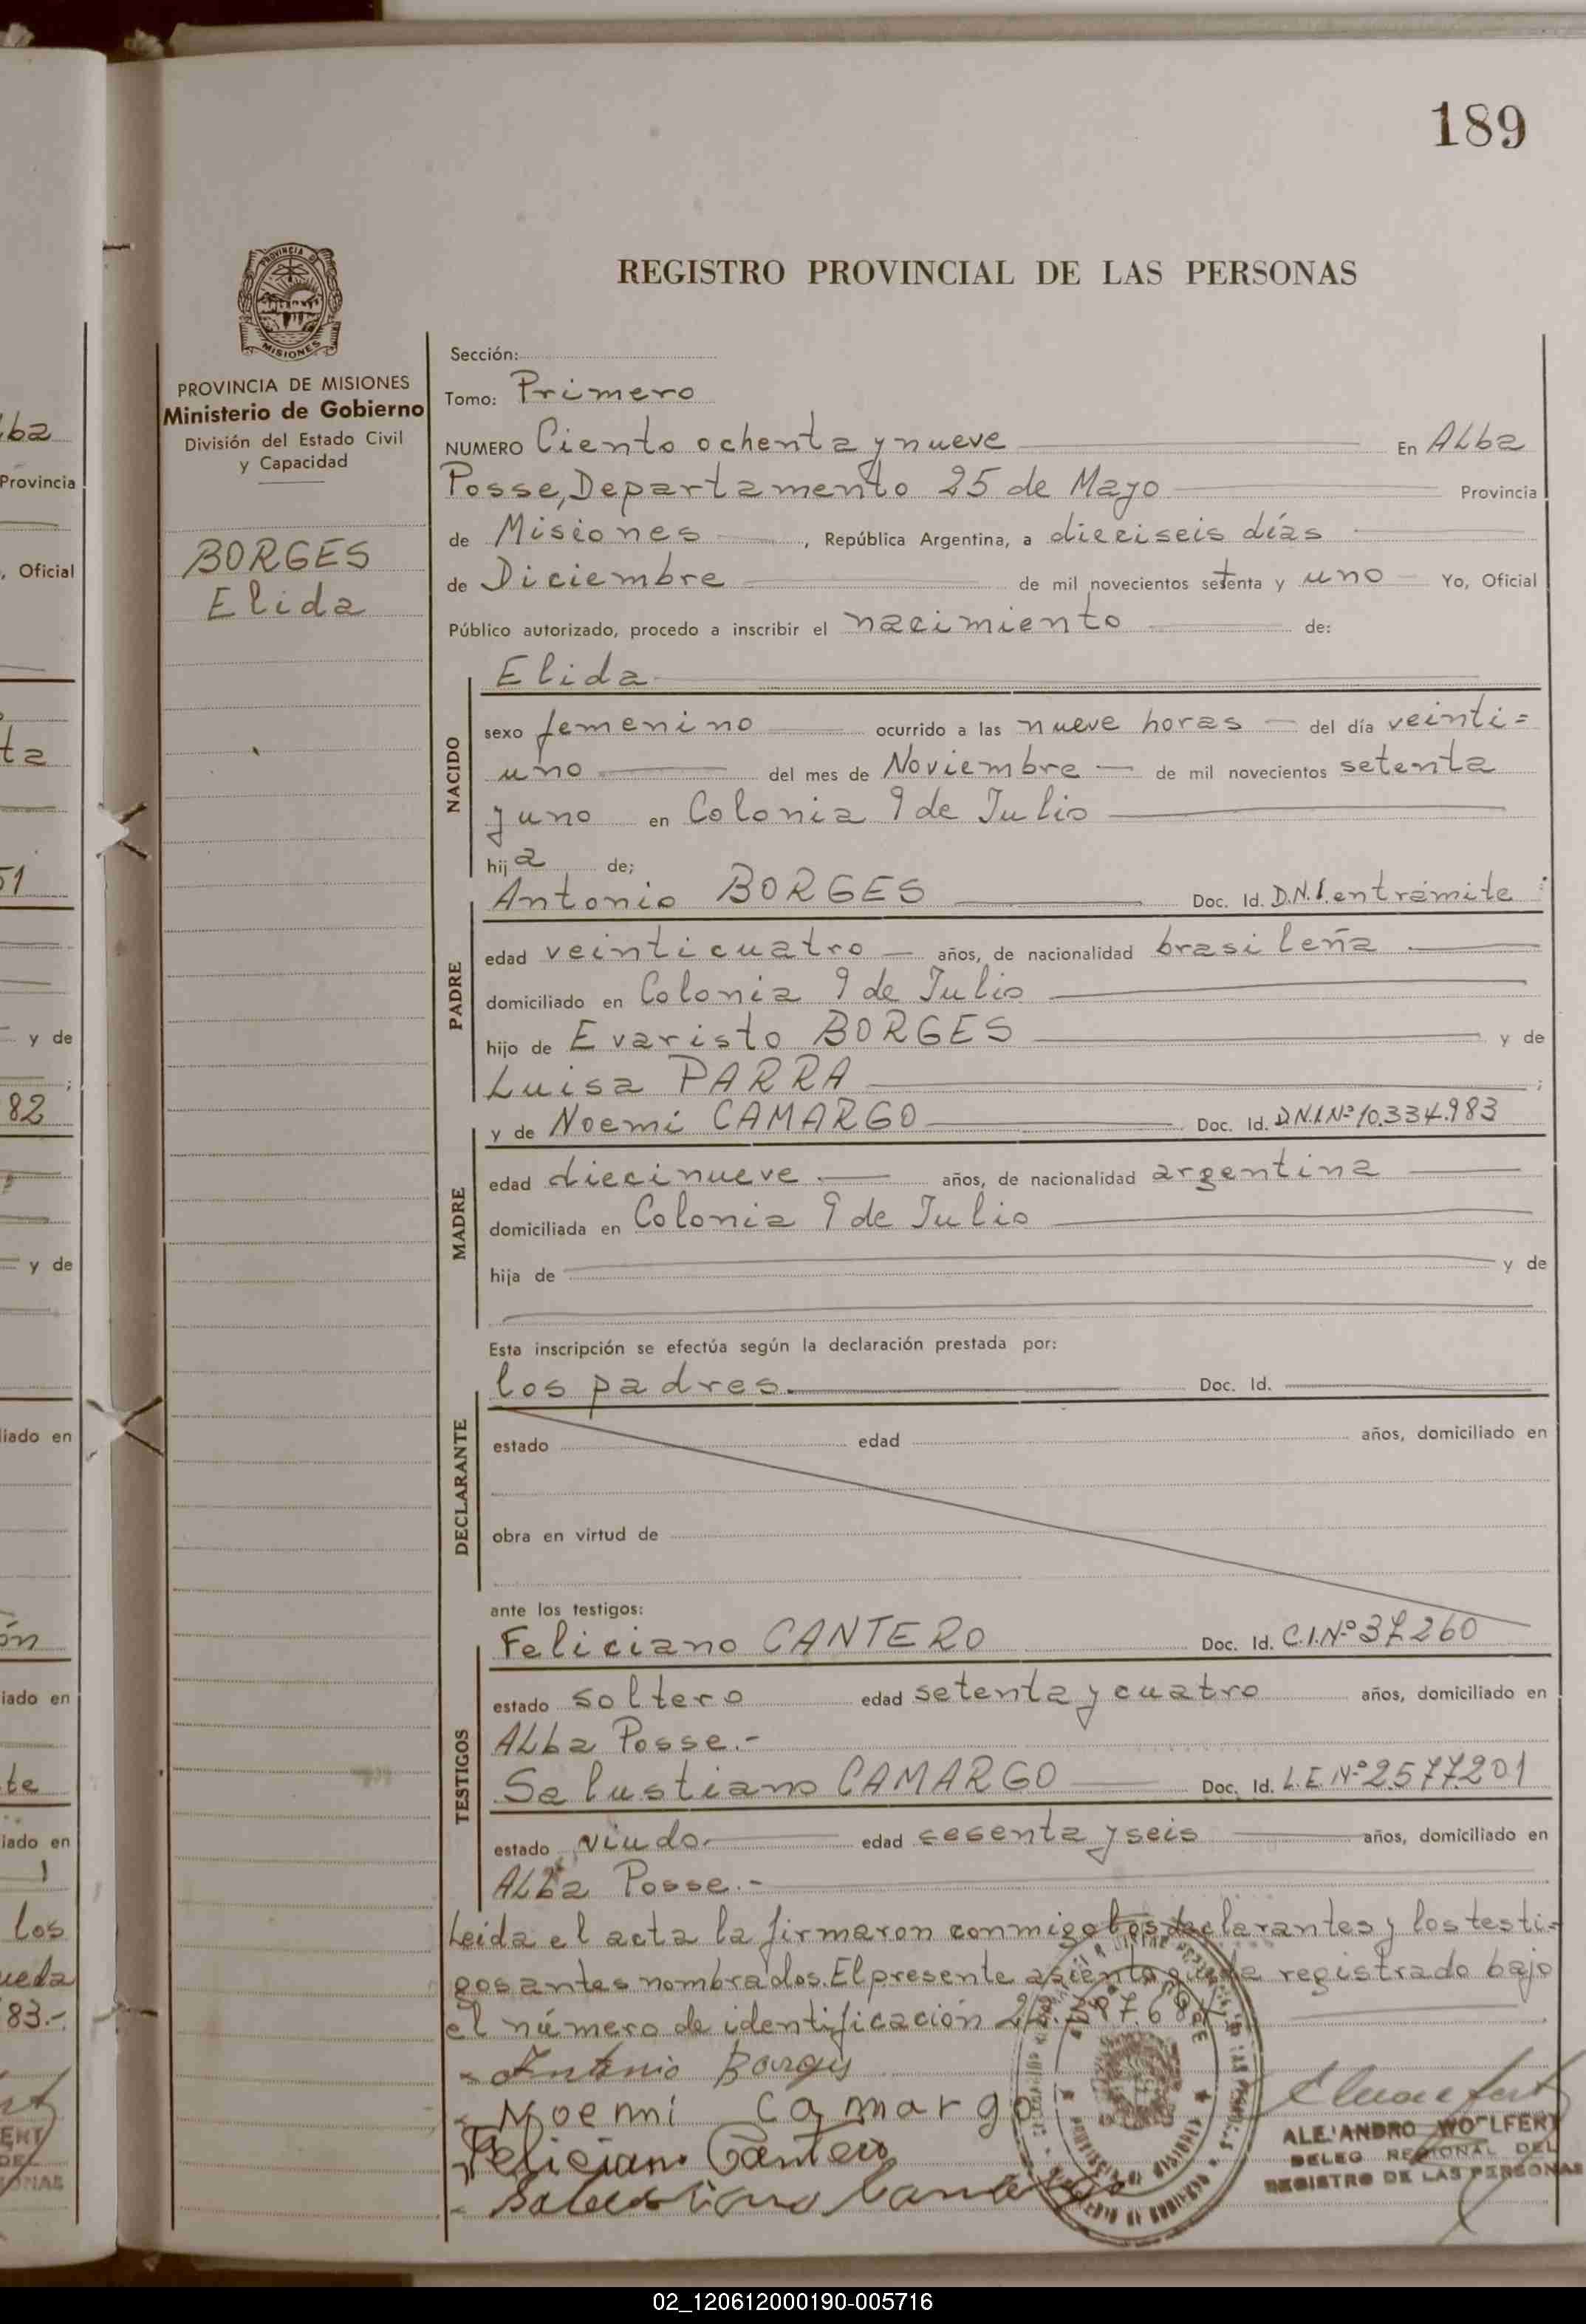 189
REGISTRO PROVINCIAL DE LAS PERSONAS
PROVINCIA DE
MISIONES
PROVINCIA DE MISIONES
Ministerio de Gobierno
División del Estado Civil
y Capacidad
BORGES
Elida
Sección:
Tomo: Primero
NUMERO Ciento ochenta y nueve En Alba
Posse, Departamento 25 de Mayo Provincia
de Misiones, República Argentina, a dieciseis días
de Diciembre de mil novecientos setenta y uno Yo, Oficial
Público autorizado, procedo a inscribir el nacimiento de:
Elida
NACIDO
sexo femenino ocurrido a las nueve horas del día veinti=
uno del mes de Noviembre de mil novecientos setenta
y uno en Colonia 9 de Julio
hija de;
Antonio BORGES Doc. Id. D.N.I. en trámite
PADRE
edad veinticuatro años, de nacionalidad brasileña
domiciliado en Colonia 9 de Julio
hijo de Evaristo BORGES y de
Luisa PARRA ;
y de Noemi CAMARGO Doc. Id. D.N.I. Nº 10.334.983
MADRE
edad diecinueve años, de nacionalidad argentina
domiciliada en Colonia 9 de Julio
hija de y de
Esta inscripción se efectúa según la declaración prestada por:
los padres. Doc. Id.
DECLARANTE
estado edad años, domiciliado en
obra en virtud de
ante los testigos:
Feliciano CANTERO Doc. Id. C.I. Nº 37260
TESTIGOS
estado soltero edad setenta y cuatro años, domiciliado en
Alba Posse.-
Salustiano CAMARGO Doc. Id. L.E. Nº 2577201
estado viudo. edad sesenta y seis años, domiciliado en
Alba Posse.-
Leida el acta la firmaron conmigo los declarantes y los testi=
gos antes nombrados. El presente asiento queda registrado bajo
el número de identificación
Antonio Borges
Noemi Camargo
Feliciano Cantero
ALEJANDRO WOLFERT
DELEG REGIONAL DEL
REGISTRO DE LAS PERSONAS
02_120612000190-005716